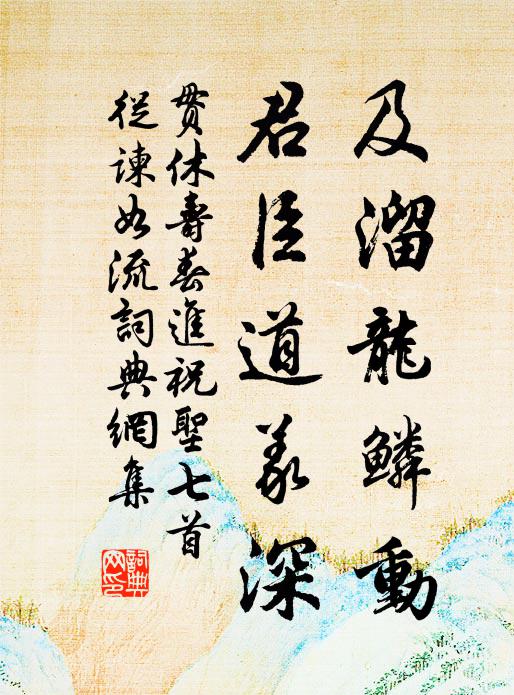 及溜龍鱗動
君臣道義深
貫休壽春進祝聖七首
從諫如流詞典網集
詞典網印